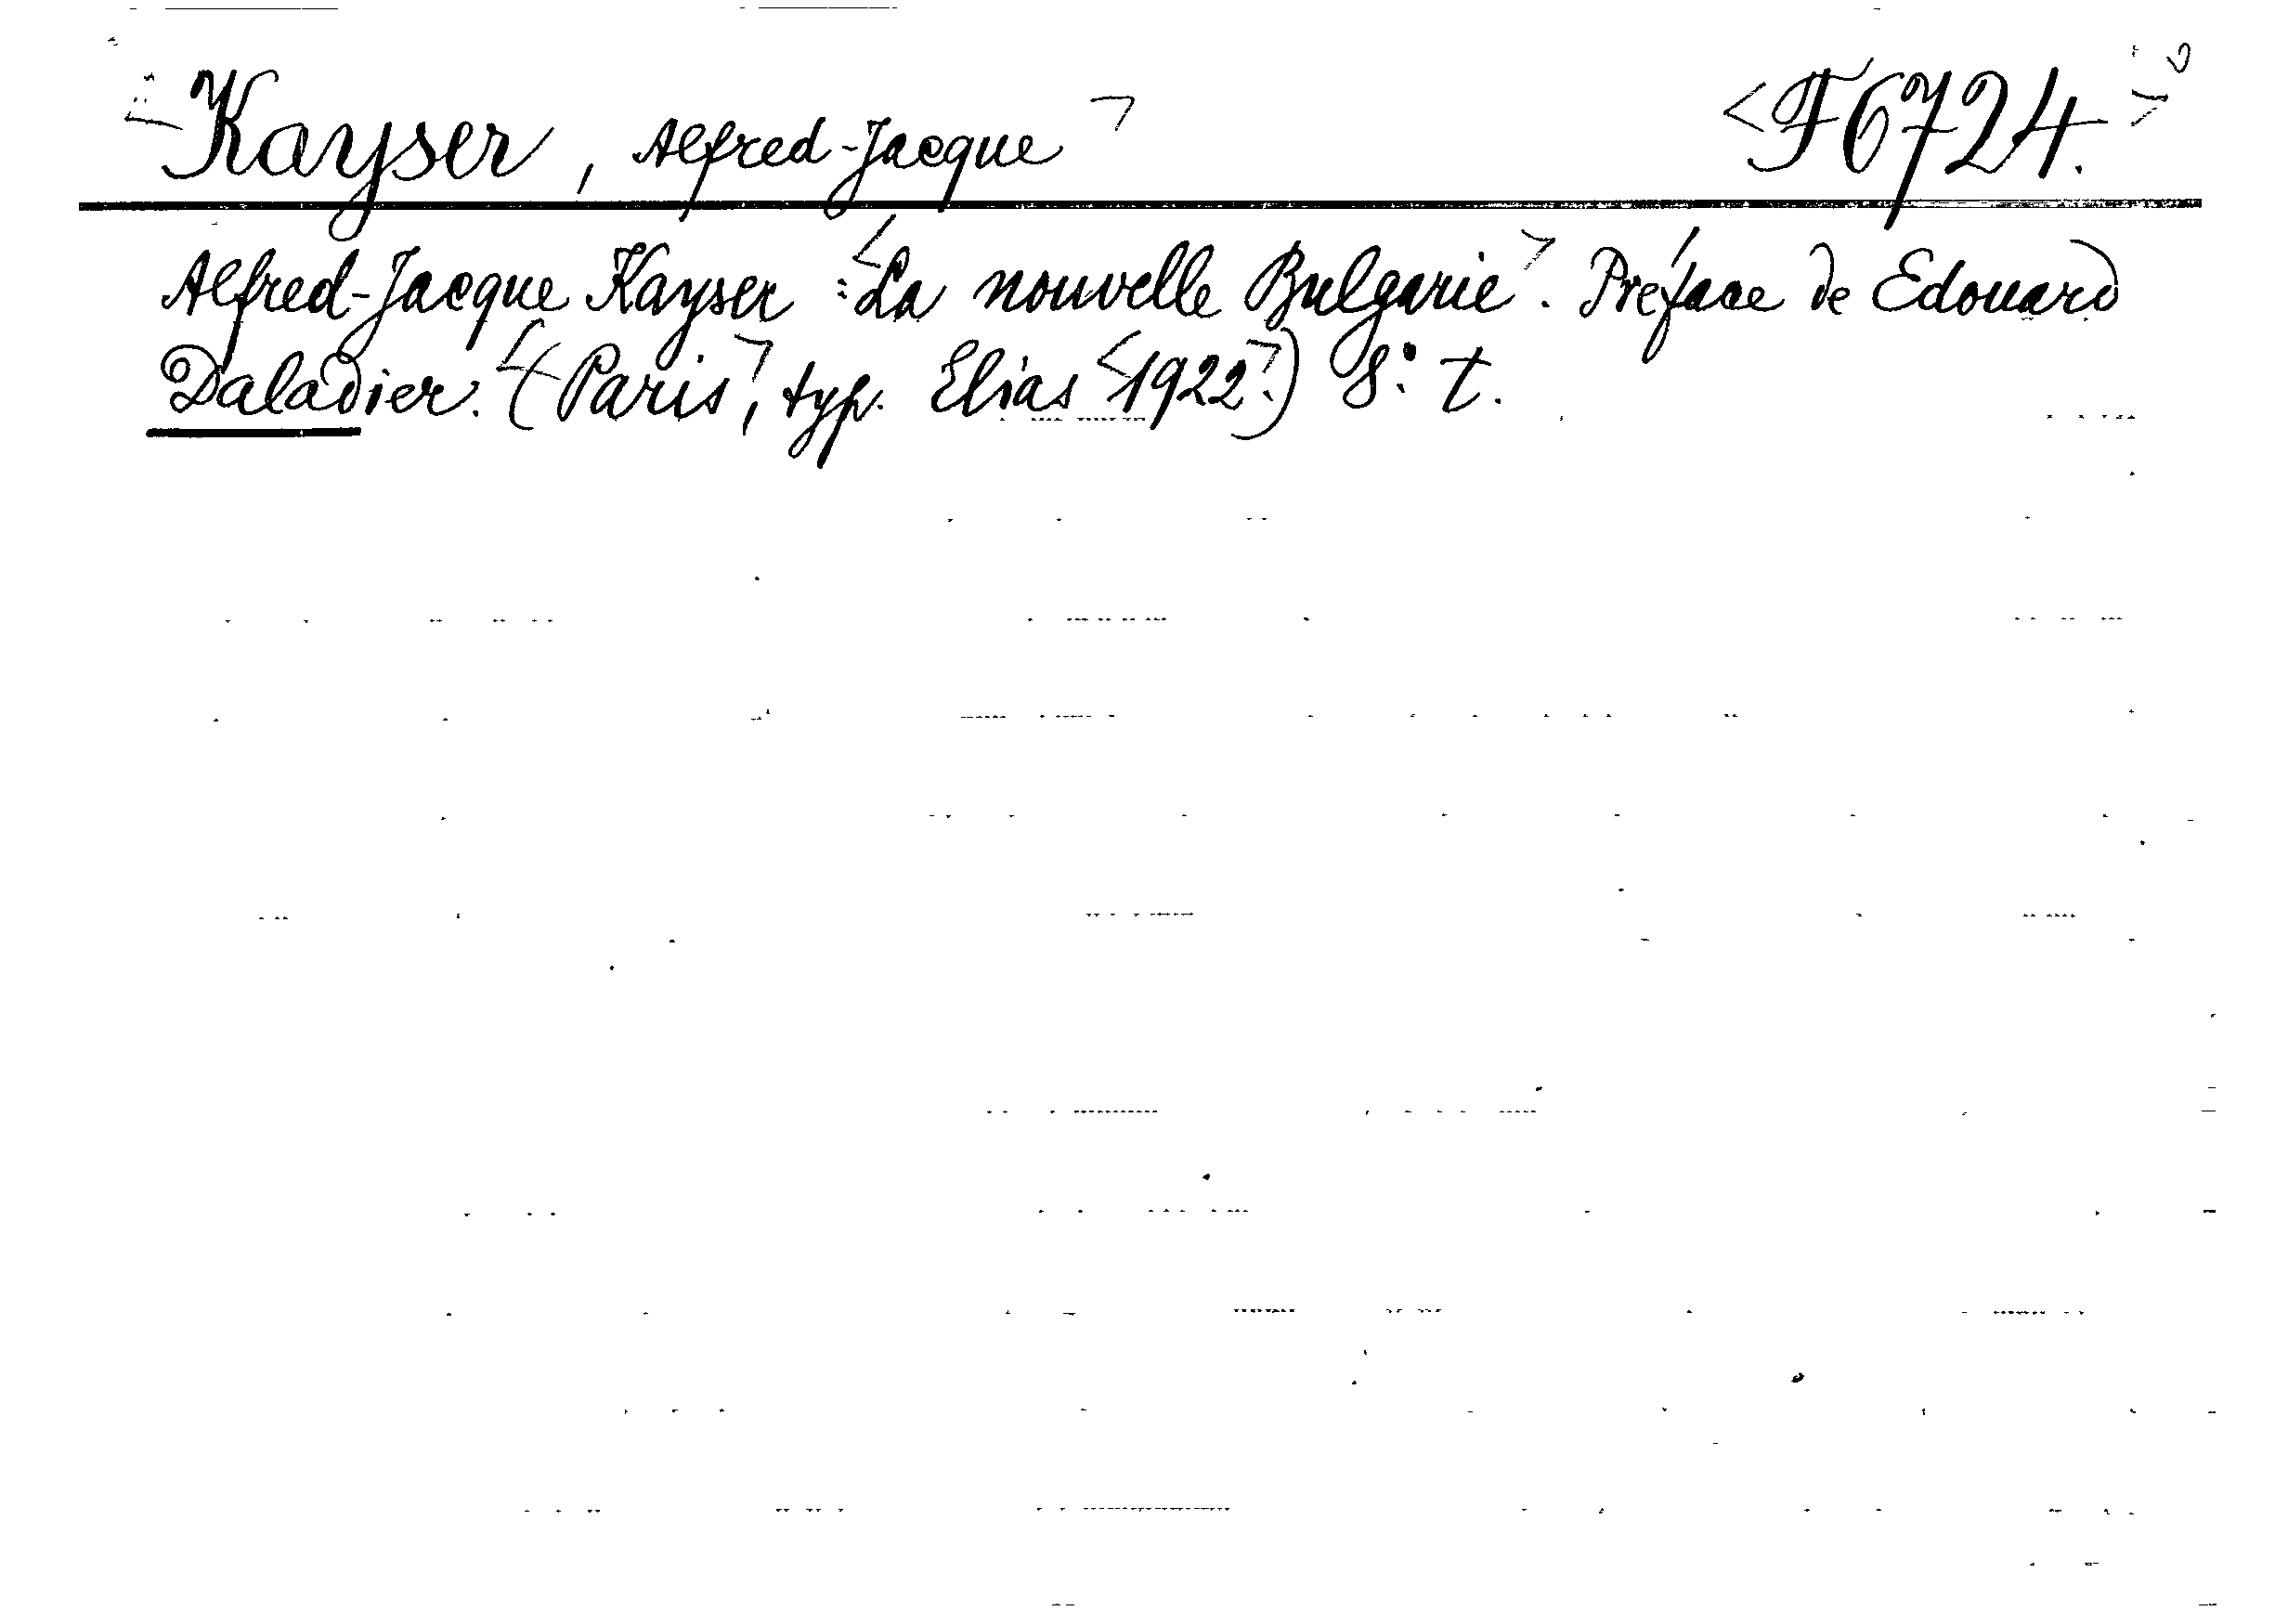 Kayser, Alfred-Jacque <F6724.>
Alfred-Jacque Kayser : <La nouvelle Bulgarie>. Préface de Edouard
Daladier. <(Paris>, typ. Elias <1922>.) 8° t.